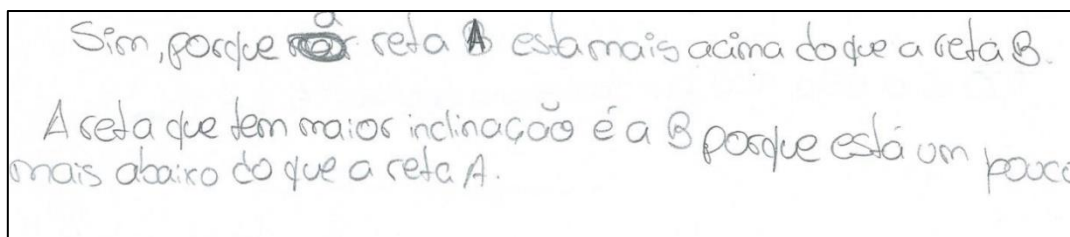 Sim, porque a reta A esta mais acima do que a reta B.
A reta que tem maior inclinação é a B porque está um pouco
mais abaixo do que a reta A.